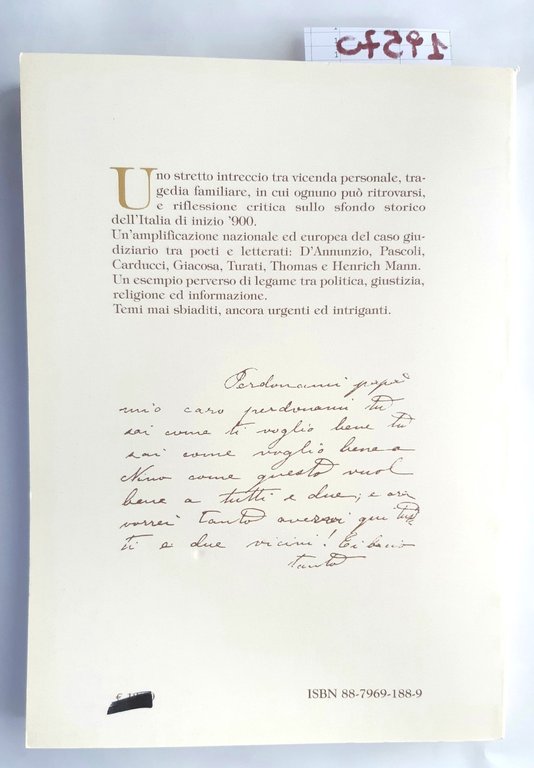 Uno stretto intreccio tra vicenda personale, tra-
gedia familiare, in cui ognuno può ritrovarsi,
e riflessione critica sullo sfondo storico
dell'Italia di inizio '900.
Un'amplificazione nazionale ed europea del caso giu-
diziario tra poeti e letterati: D'Annunzio, Pascoli,
Carducci, Giacosa, Turati, Thomas e Henrich Mann.
Un esempio perverso di legame tra politica, giustizia,
religione ed informazione.
Temi mai sbiaditi, ancora urgenti ed intriganti.
Perdonami papà
mio caro perdonami tu
sai come ti voglio bene tu
sai come voglio bene a
Nino come questo vuol
bene a tutti e due; e ora
vorrei tanto avervi qui tut
ti e due vicini! Ti bacio
tanto
ISBN 88-7969-188-9